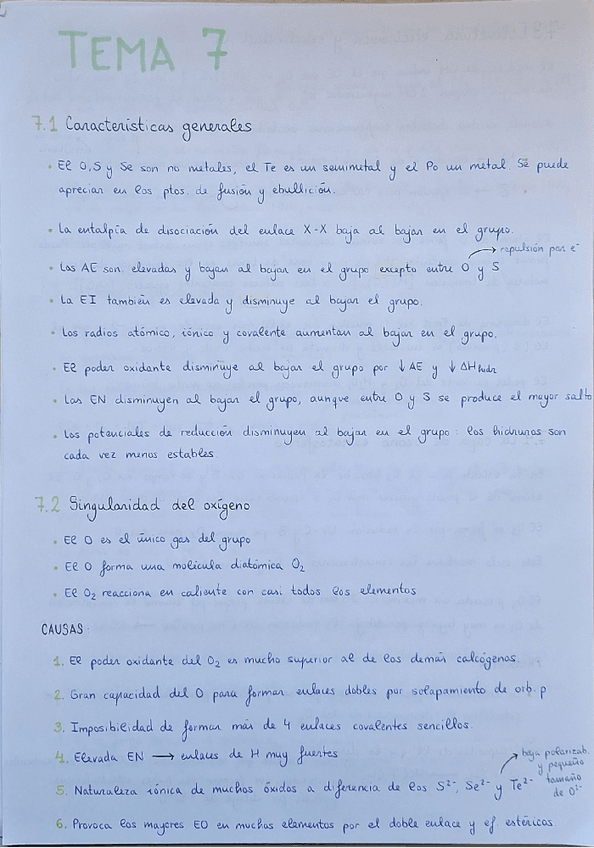 TEMA 7
7.1 Características generales
• El O, S y Se son no metales, el Te es un semimetal y el Po un metal. Se puede
apreciar en los ptos. de fusión y ebullición.
• La entalpía de disociación del enlace X-X baja al bajar en el grupo.
→ repulsión por e⁻
• Las AE son elevadas y bajan al bajar en el grupo excepto entre O y S
• La EI también es elevada y disminuye al bajar el grupo.
• Los radios atómico, iónico y covalente aumentan al bajar en el grupo.
• El poder oxidante disminuye al bajar el grupo por ↓ AE y ↓ ΔHhidr
• Las EN disminuyen al bajar el grupo, aunque entre O y S se produce el mayor salto
• Los potenciales de reducción disminuyen al bajar en el grupo: los hidruros son
cada vez menos estables.
7.2 Singularidad del oxígeno
• El O es el único gas del grupo
• El O forma una molécula diatómica O₂
• El O₂ reacciona en caliente con casi todos los elementos
CAUSAS:
1. El poder oxidante del O₂ es mucho superior al de los demás calcógenos.
2. Gran capacidad del O para formar enlaces dobles por solapamiento de orb. p
3. Imposibilidad de formar más de 4 enlaces covalentes sencillos.
4. Elevada EN → enlaces de H muy fuertes
→ baja polarizab.
y pequeño
tamaño
de O²⁻
5. Naturaleza iónica de muchos óxidos a diferencia de los S²⁻, Se²⁻ y Te²⁻
6. Provoca los mayores EO en muchos elementos por el doble enlace y ef. estéricos.